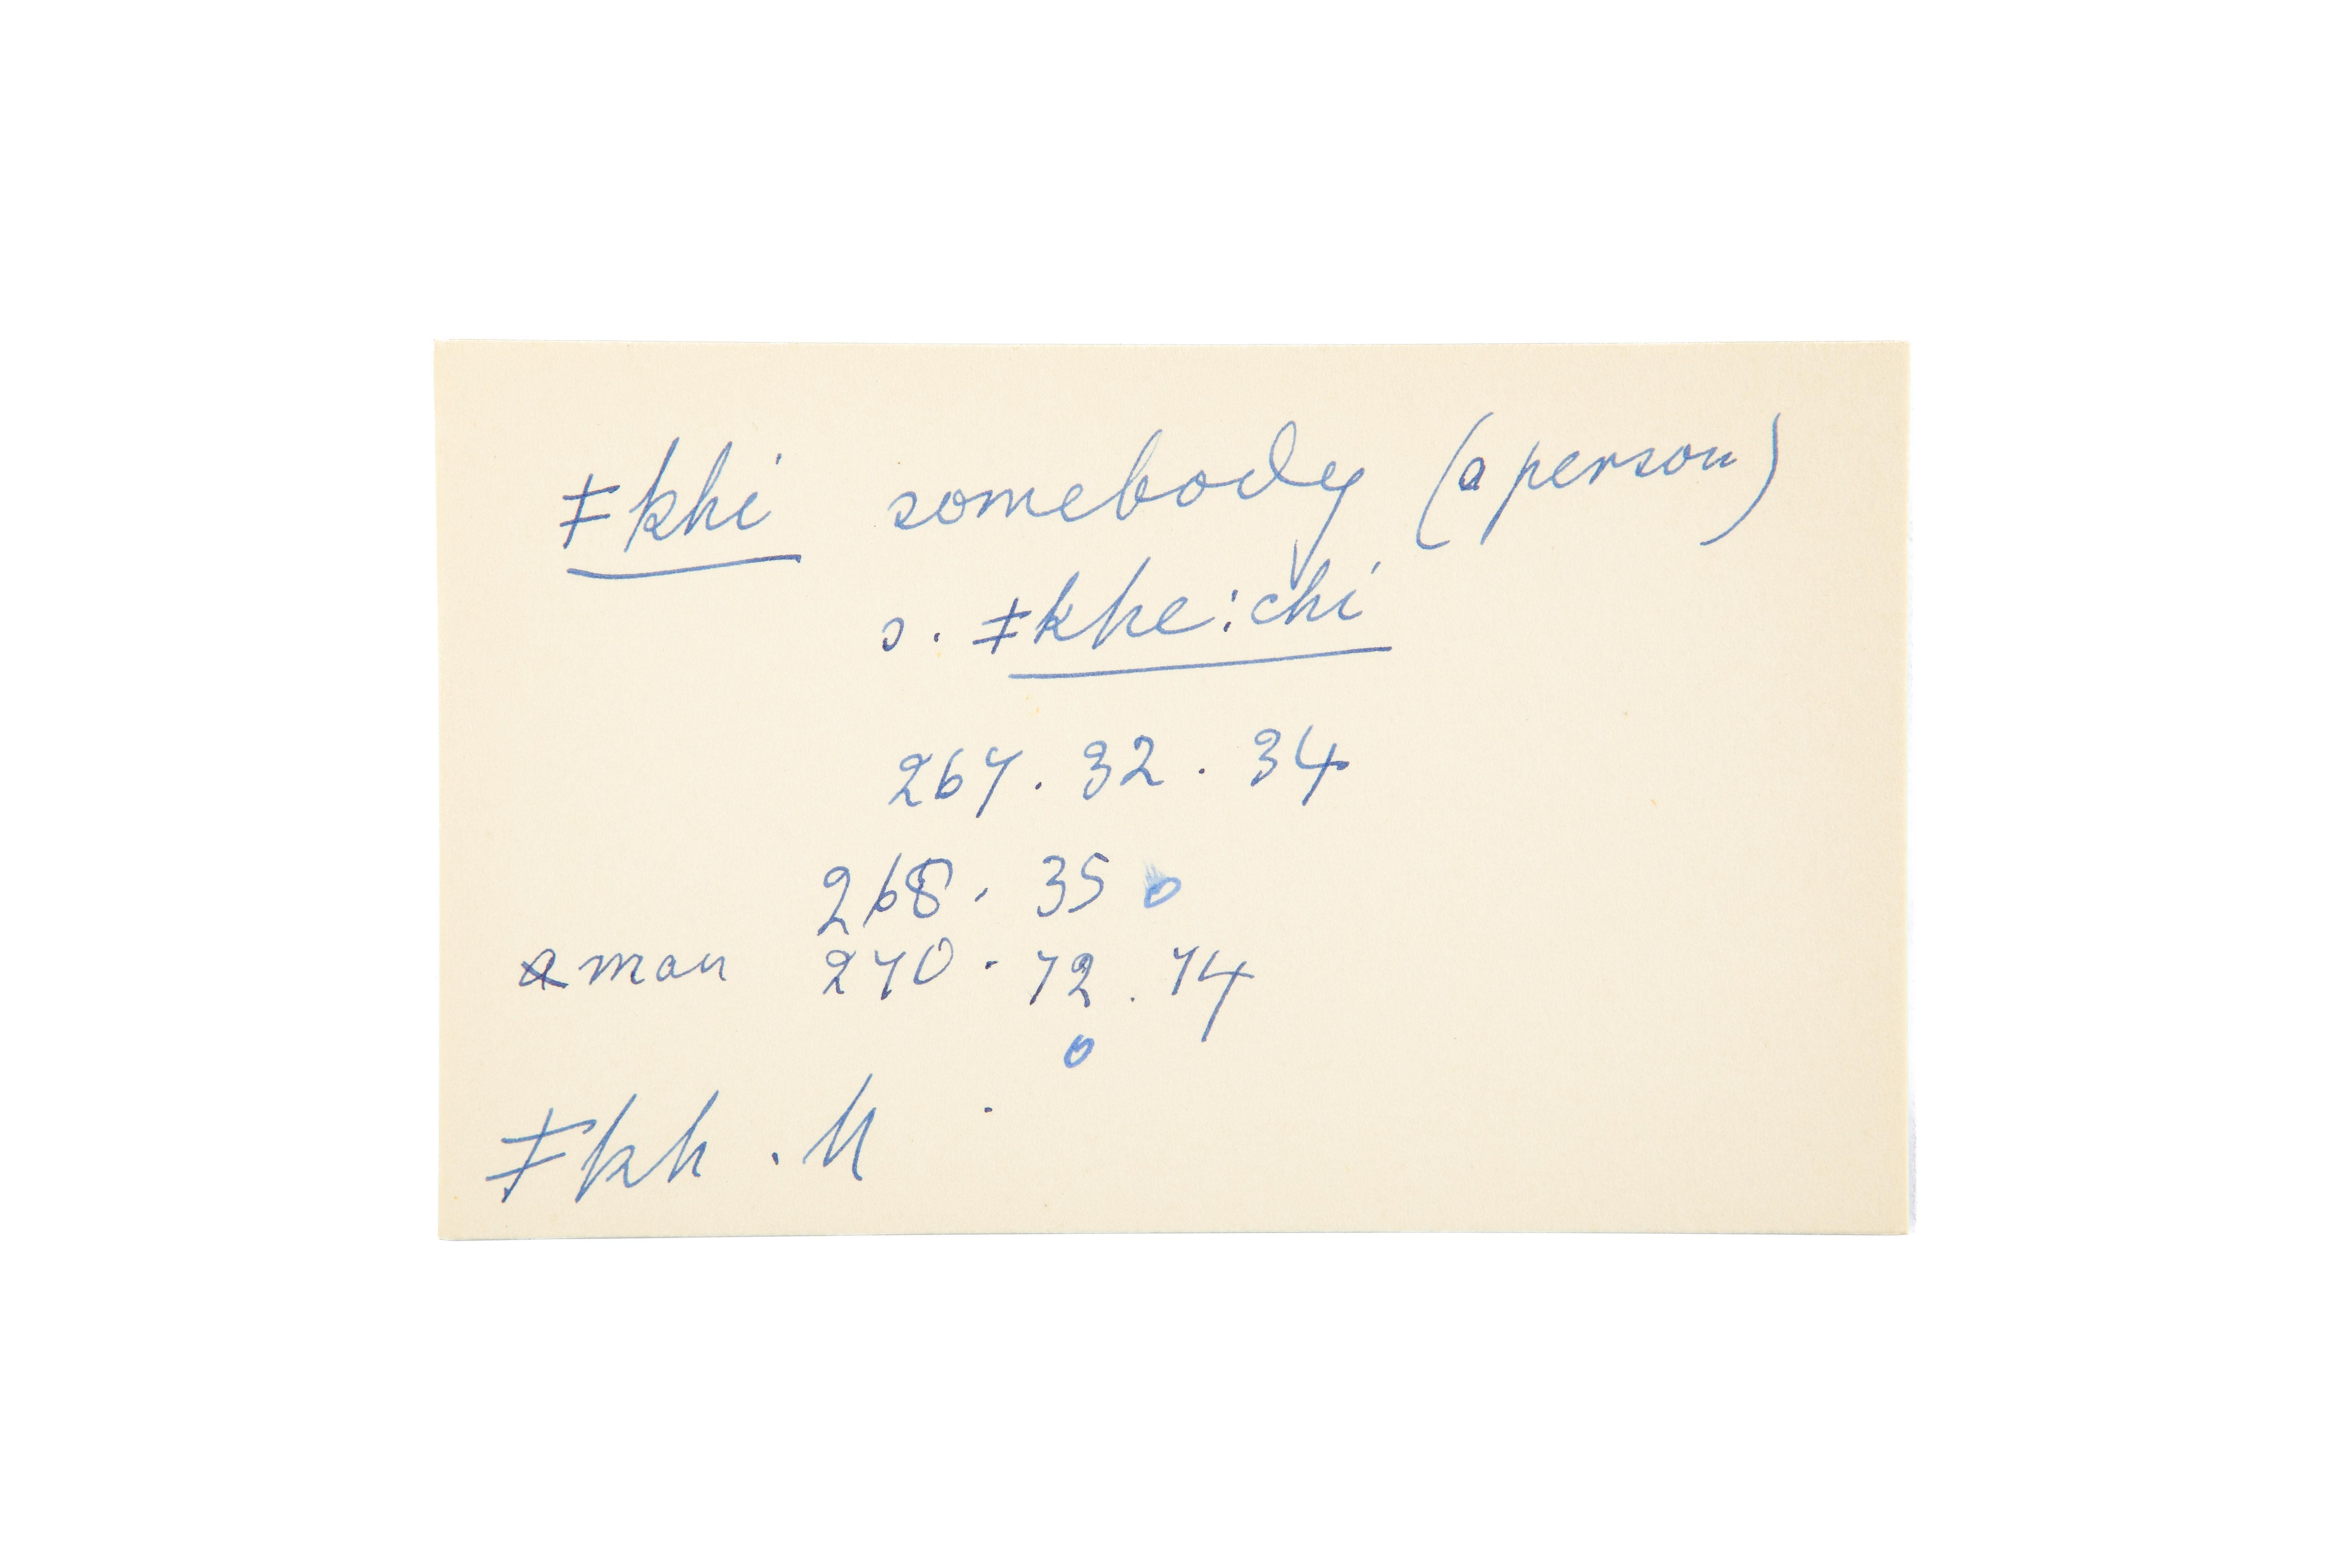 ǂkhi somebody (a person)
s. ǂkhe:chi
267. 32. 34
268. 35 o
a man 270. 72. 74
o
ǂkh. M